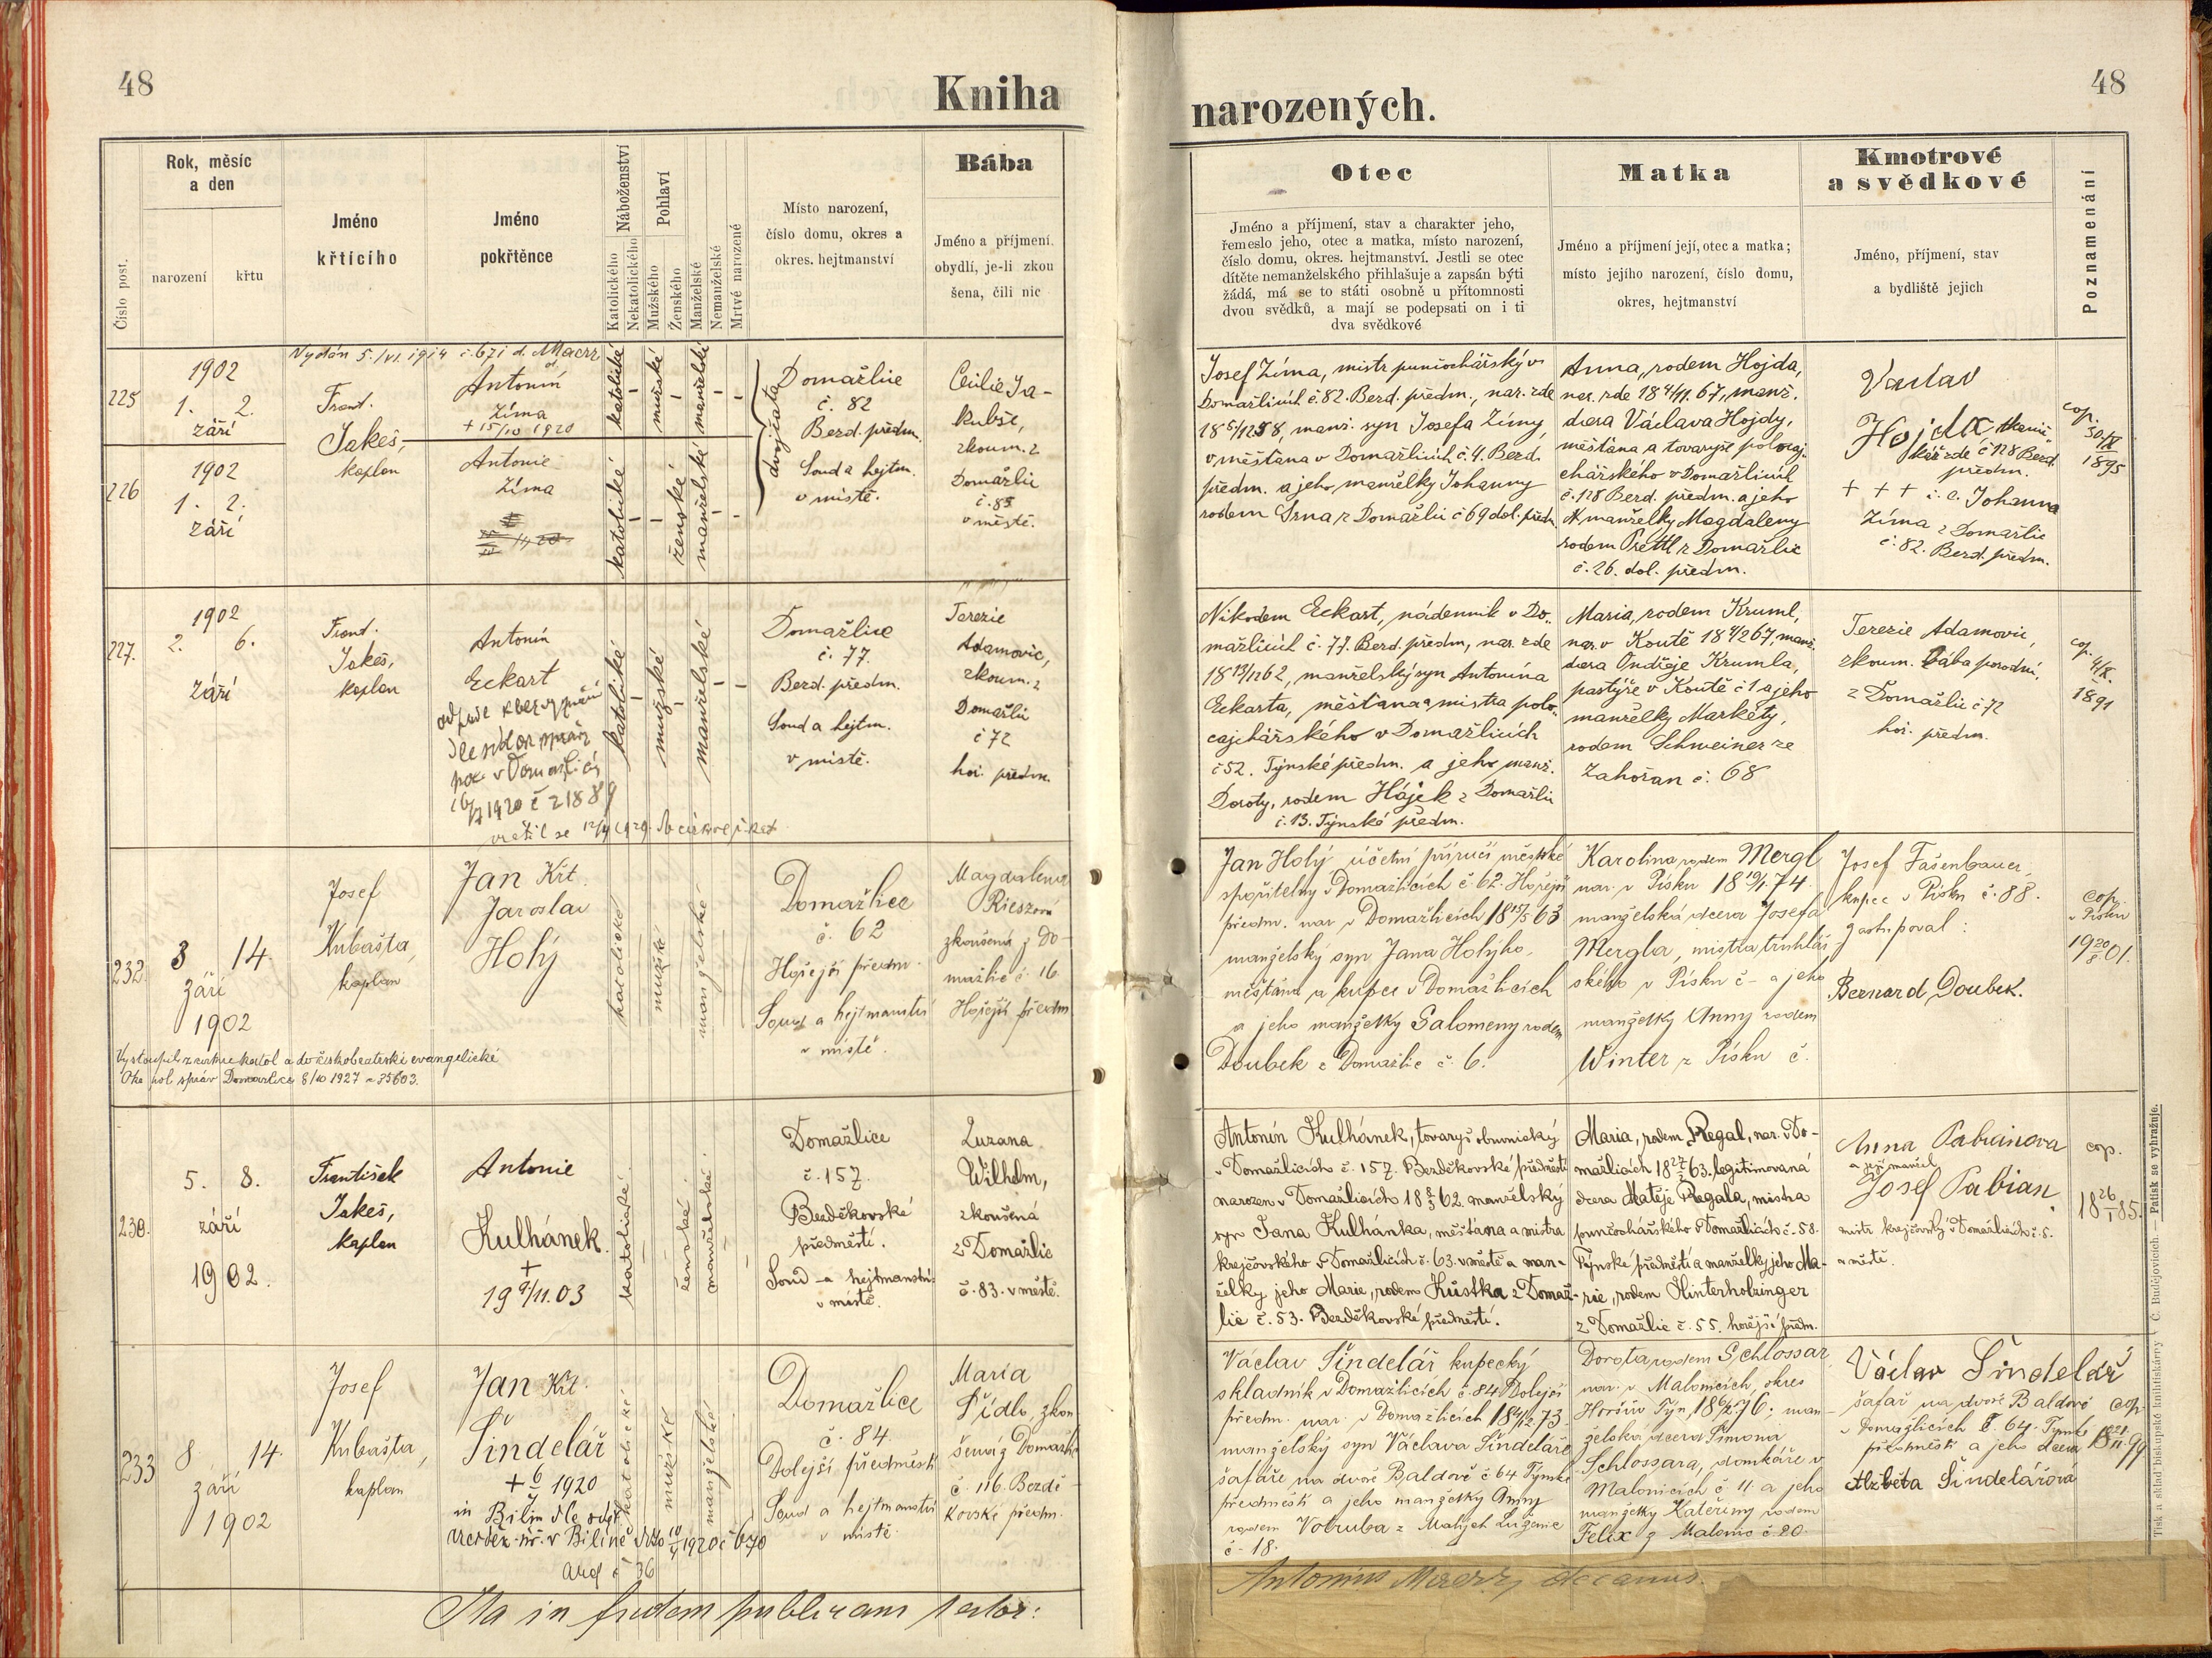 48
Kniha
Rok, měsíc
a den
Bába
Číslo post.
narození
křtu
Jméno
křtícího
Jméno
pokřtěnce
Náboženství
Katolického
Nekatolického
Pohlaví
Mužského
Ženského
Manželské
Nemanželské
Mrtvé narozené
Místo narození,
číslo domu, okres a
okres. hejtmanství
Jméno a příjmení.
obydlí, je-li zkou
šena, čili nic
Vydán 5./VI. 1914 č. 621 d. Maerz
225
1902
1. 2.
září
Frant.
Jakeš,
kaplan
Antonín
Zíma
+ 15/10 1920
katolické
mužské
manželské
dvojčata
Domažlice
č. 82
Bezd. předm.
Soud a hejtm.
v místě.
Cecilie Ja-
kubše,
zkoum. z
Domažlic
č. 83
v městě.
226
1902
1. 2.
září
Antonie
Zíma
katolické
ženské
manželské
227.
1902
2. 6.
září
Frant.
Jakeš,
kaplan
Antonín
Eckart
katolické
mužské
manželské
Domažlice
č. 77.
Bezd. předm.
Soud a hejtm.
v místě.
Terezie
Adamovic,
zkoum. z
Domažlic
č 72
hoř. předm.
232.
3 14.
září
1902
Josef
Kubašta,
kaplan
Jan Křt.
Jaroslav
Holý
katolické
mužské
manželské
Domažlice
č. 62
Hořejší předm.
Soud a hejtmanství
v místě.
Magdalena
Rieszová
zkoušená z Do-
mažlic č. 16
Hořejší předm
Vystoupil z církve katol a do českobratrské evangelické
Okr pol správ Domažlice 8/10 1927 č 35603.
230.
5. 8.
září
1902.
František
Jakeš,
kaplan
Antonie
Kulhánek.
+
19 9/11. 03
katolické.
ženské.
manželské.
Domažlice
č. 157.
Bezděkovské
předměstí.
Soud a hejtmanství
v místě.
Zuzana
Wilhelm,
zkoušená
z Domažlic
č. 83. v městě.
233
8 14.
září
1902
Josef
Kubašta,
kaplan
Jan Křt.
Šindelář
+ 6/4 1920
in Bílin
katolické
mužské
manželské
Domažlice
č. 84
Dolejší předměstí
Soud a hejtmanství
v místě.
Maria
Šídlo, zkou
šená z Domažlic
č. 116. Bezdě-
kovské předm.
Ita in fidem publicam testor:
48
narozených.
Otec
Jméno a příjmení, stav a charakter jeho,
řemeslo jeho, otec a matka, místo narození,
číslo domu, okres. hejtmanství. Jestli se otec
dítěte nemanželského přihlašuje a zapsán býti
žádá, má se to státi osobně u přítomnosti
dvou svědků, a mají se podepsati on i ti
dva svědkové
Matka
Jméno a příjmení její, otec a matka;
místo jejího narození, číslo domu,
okres, hejtmanství
Kmotrové
a svědkové
Jméno, příjmení, stav
a bydliště jejich
Poznamenání
Josef Zíma, mistr punčochářský v
Domažlicích č. 82. Bezd. předm., nar. zde
18 5/12 58, manž. syn Josefa Zímy,
měšťana v Domažlicích č. 4. Bezd.
předm. a jeho manželky Johanny
rodem Srna z Domažlic č 69 dol. předm.
Anna, rodem Hojda,
nar. zde 18 4/11. 67, manž.
dcera Václava Hojdy,
měšťana a tovaryše polocaj-
chářského v Domažlicích
č. 128 Bezd. předm. a jeho
manželky Magdaleny
rodem Prettl z Domažlic
č. 26. dol. předm.
Václav
Hojda
zde č 128 Bezd.
předm.
+ + + i. e. Johanna
Zíma z Domažlic
č. 82. Bezd. předm.
cop.
30./IX
1895
Nikodem Eckart, nádenník v Do-
mažlicích č. 77. Bezd. předm, nar. zde
18 13/12 62, manželský syn Antonína
Eckarta, měšťana a mistra polo-
cajchářského v Domažlicích
č 52. Týnské předm. a jeho manž.
Doroty, rodem Hájek z Domažlic
č. 13. Týnské předm.
Maria, rodem Kruml,
nar. v Koutě 18 4/2 67, manž.
dcera Ondřeje Krumla,
pastýře v Koutě č 1 a jeho
manželky Markéty,
rodem Schweiner ze
Zahořan č. 68
Terezie Adamovic,
zkoum. bába porodní,
z Domažlic č 72
hoř. předm.
cop.
4/X.
1891
Jan Holý účetní příručí městské
spořitelny v Domažlicích č. 62. Hořejší
předm. nar. v Domažlicích 18 15/5 63
manželský syn Jana Holýho,
měšťana a kupce v Domažlicích
a jeho manželky Salomeny rodem
Doubek z Domažlic č. 6.
Karolina rodem Mergl
nar. v Písku 18 19/1. 74.
manželská dcera Josefa
Mergla, mistra truhlář
ského v Písku č - a jeho
manželky Anny rodem
Winter z Písku č.
Josef Fašenbauer,
kupec v Písku č. 88.
zastupoval:
Bernard Doubek.
cop.
v Písku
19 20/8 01.
Antonín Kulhánek, tovaryš obuvnický
v Domažlicích č. 157. Bezděkovské předměstí
narozen v Domažlicích 18 8/5 62. manželský
syn Jana Kulhánka, měšťana a mistra
krejčovského v Domažlicích č. 63. v městě a man-
želky jeho Marie, rodem Kůstka z Domaž-
lic č. 53. Bezděkovské předměstí.
Maria, rodem Regal, nar. v Do-
mažlicích 18 27/1 63. legitimovaná
dcera Matěje Regala, mistra
punčochářského v Domažlicích č. 58.
Týnské předměstí a manželky jeho Ma-
rie, rodem Hinterholzinger
z Domažlic č. 55. hořejší předm.
Anna Pabianova
a její manžel
Josef Pabian,
mistr krejčovský v Domažlicích č. 5.
v městě.
cop.
18 26/1 85.
Václav Šindelář kupecký
skladník v Domažlicích č. 84 Dolejší
předm. nar. v Domažlicích 18 4/12 73
manželský syn Václava Šindeláře
šafáře na dvoře Baldově č 64 Týnské
předměstí a jeho manželky Anny
rodem Votruba z Malých Lužanic
č - 18.
Dorota rodem Schlossar,
nar. v Malonicích, okres
Horšův Týn 18 6/2 76; man-
želská dcera Šimona
Schlossara, domkáře v
Malonicích č. 11. a jeho
manželky Kateřiny rodem
Felix z Malonic č 20.
Václav Šindelář
šafář na dvoře Baldově
v Domažlicích č. 64. Týnské
předměstí a jeho dcera
Alžběta Šindelářová
cop.
Antonius Maerz, decanus.
Tisk a sklad biskupské knihtiskárny v Č. Budějovicích. — Patisk se vyhražuje.